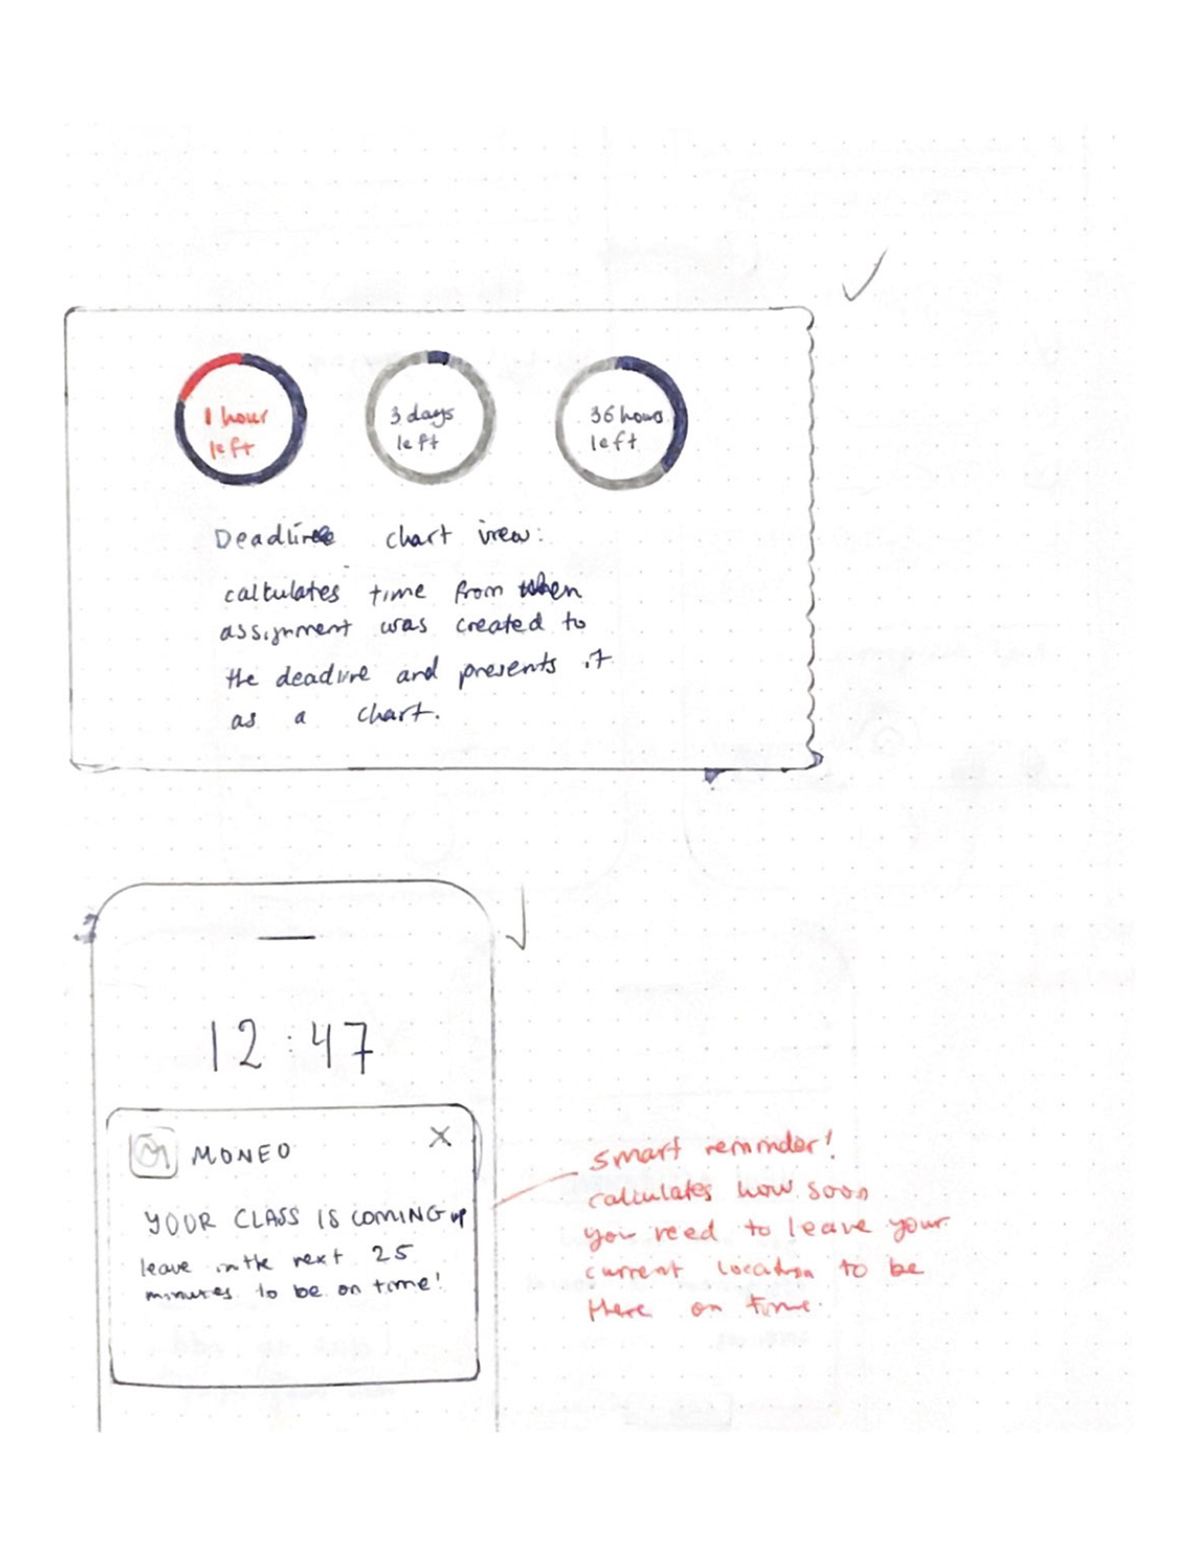 1 hour
left
3 days
left
36 hours
left
Deadline chart view:
calculates time from when
assignment was created to
the deadline and presents it
as a chart.
12:47
MONEO
X
YOUR CLASS IS COMING up
leave in the next 25
minutes to be on time!
Smart reminder!
calculates how soon
you need to leave your
current location to be
there on time.